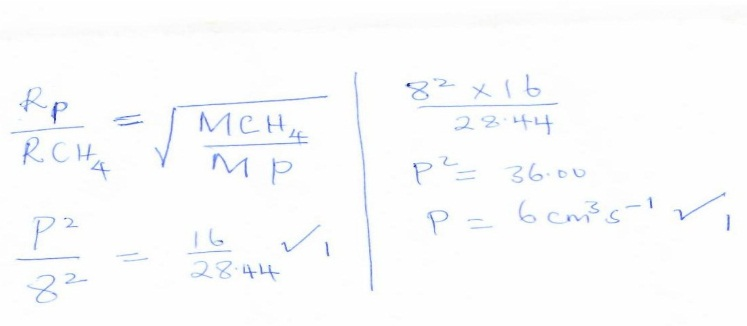 Rp / RCH₄ = √(MCH₄ / Mp)
P² / 8² = 16 / 28.44 ✓ 1
8² × 16 / 28.44
P² = 36.00
P = 6 cm³ s⁻¹ ✓ 1